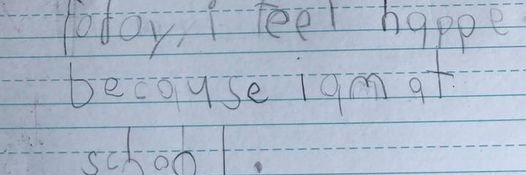 Today, i feel happe
because i am at
school.